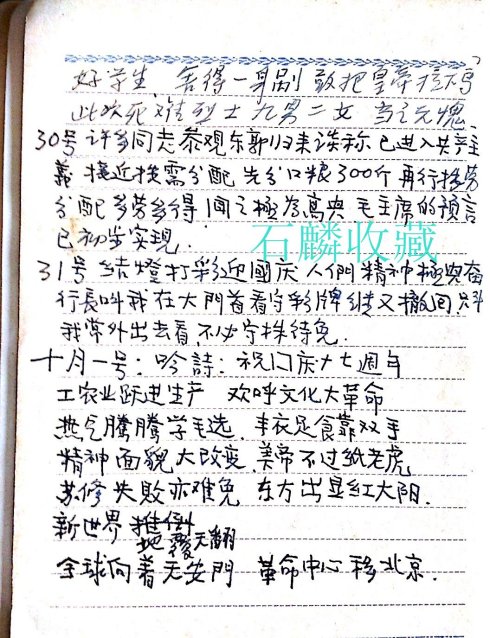 好学生 舍得一身剐 敢把皇帝拉下马
此次死难烈士九男二女 当之无愧
30号 许多同志参观东郭归来谈称 已进入共产主
义 接近按需分配 先分口粮300斤 再行按劳
分配 多劳多得 闻之极为高兴 毛主席的预言
已初步实现.
石麟收藏
31号 结燈打彩迎國庆 人們精神極兴奋
行長叫我在大門首看守彩牌 继又撤回
我常外出去看,不必守株待兔.
十月一号: 吟詩: 祝门庆十七週年
工农业跃进生产 欢呼文化大革命
热气騰騰学毛选. 丰衣足食靠双手
精神面貌大改变. 美帝不过纸老虎
苏修失敗亦难免 东方出显红太阳.
新世界 推倒
地覆天翻
全球向着天安門 革命中心移北京.